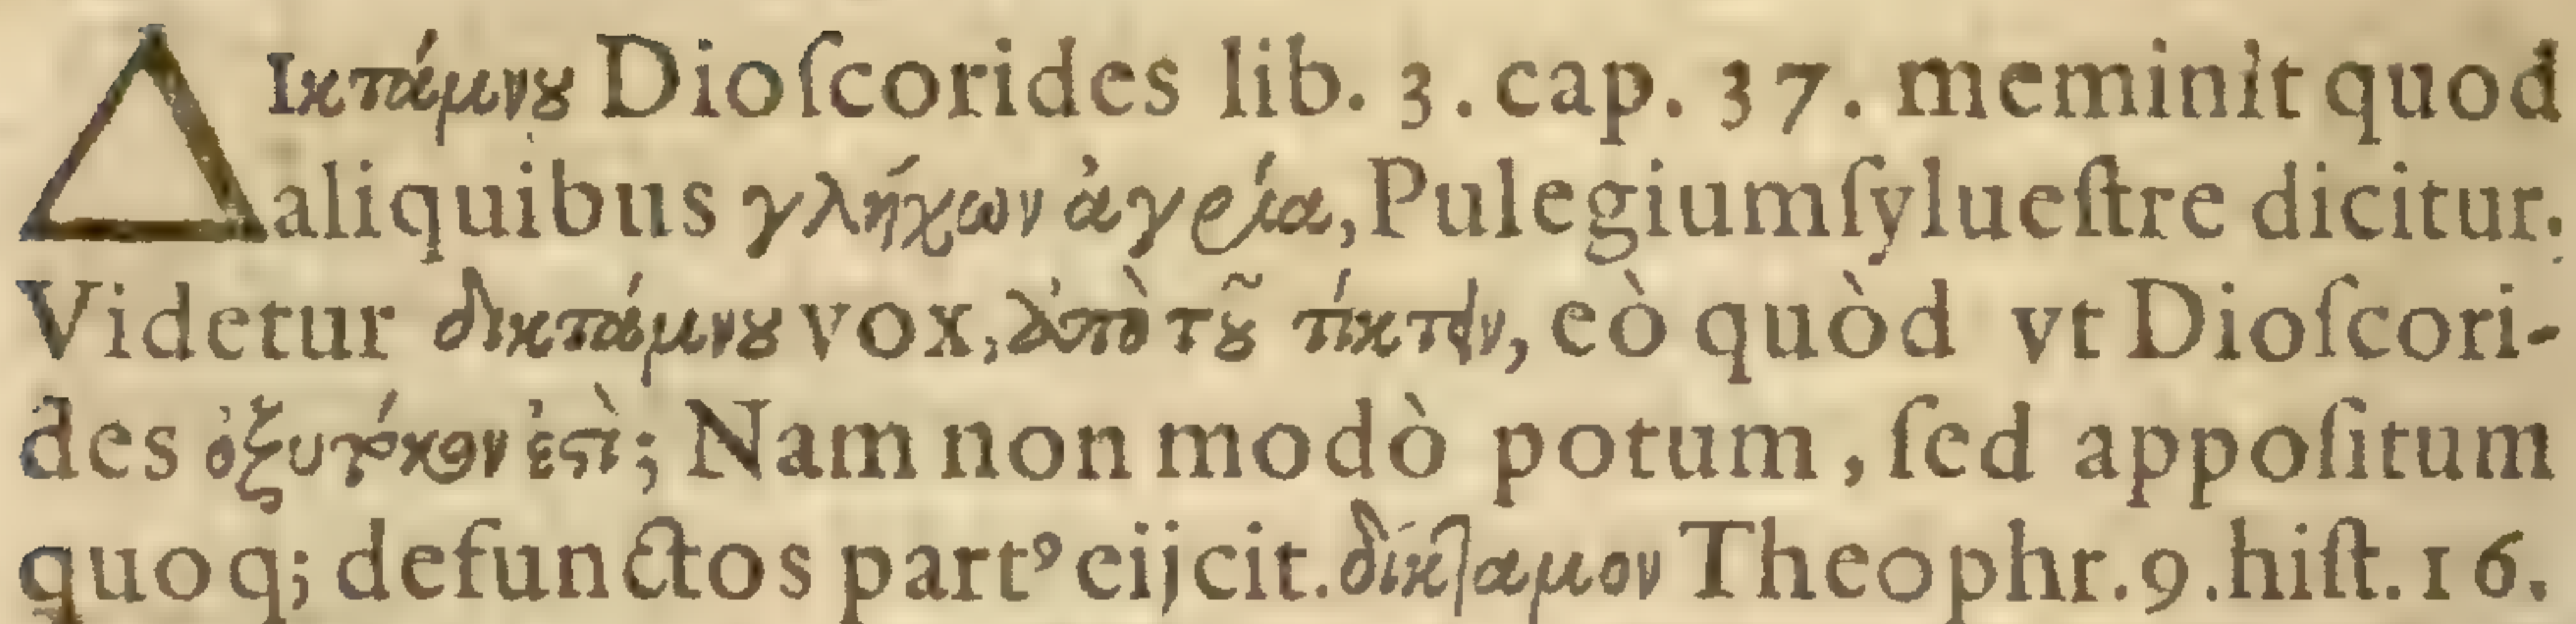 ΔΙκτάμνȣ Dioſcorides lib. 3. cap. 37. meminit quod
aliquibus γλήχων ἀγρία, Pulegiumſylueſtre dicitur.
Videtur δικταμνȣ vox, ἀπὸ τȣ͂ τίκτειν, eò quòd vt Dioſcori-
des ὀξυτόκον ἐϛὶ; Nam non modò potum, ſed appoſitum
quoq; defunctos partꝰ eijcit. δίκταμον Theophr. 9. hiſt. 16.